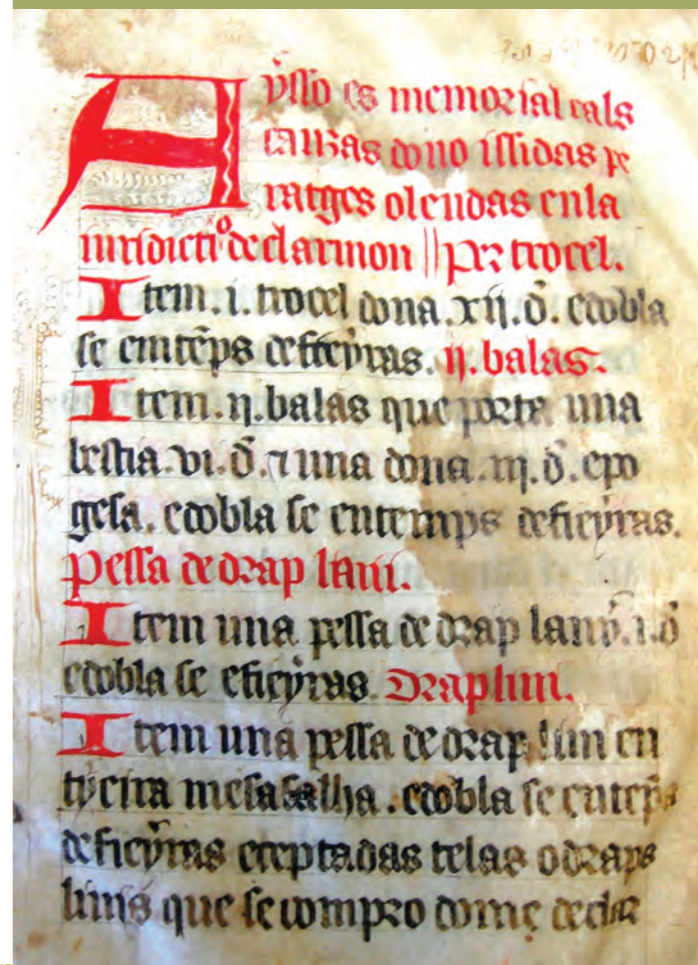 Aẏsso es memorial cals
cauzas dono issidas pe
ratges o leudas en la
iuridictiº de clarmon || Per trocel.
Item .i. trocel dona .xii. đ. e dobla
se em tēps de fieẏras. ii. balas.
Item .ii. balas que porta una
bestia .vi. đ. ⁊ una dona .iii. đ. e po
gesa. e dobla se en temps de fieẏras.
Pessa de drap lani.
Item una pessa de drap lanẏ .i. đ
e dobla se e fieẏras. Drap lini.
Item una pessa de drap lini en
tẏeira mesalha. e dobla se en tēps
de fieẏras eceptadas telas o draps
linis que se compro